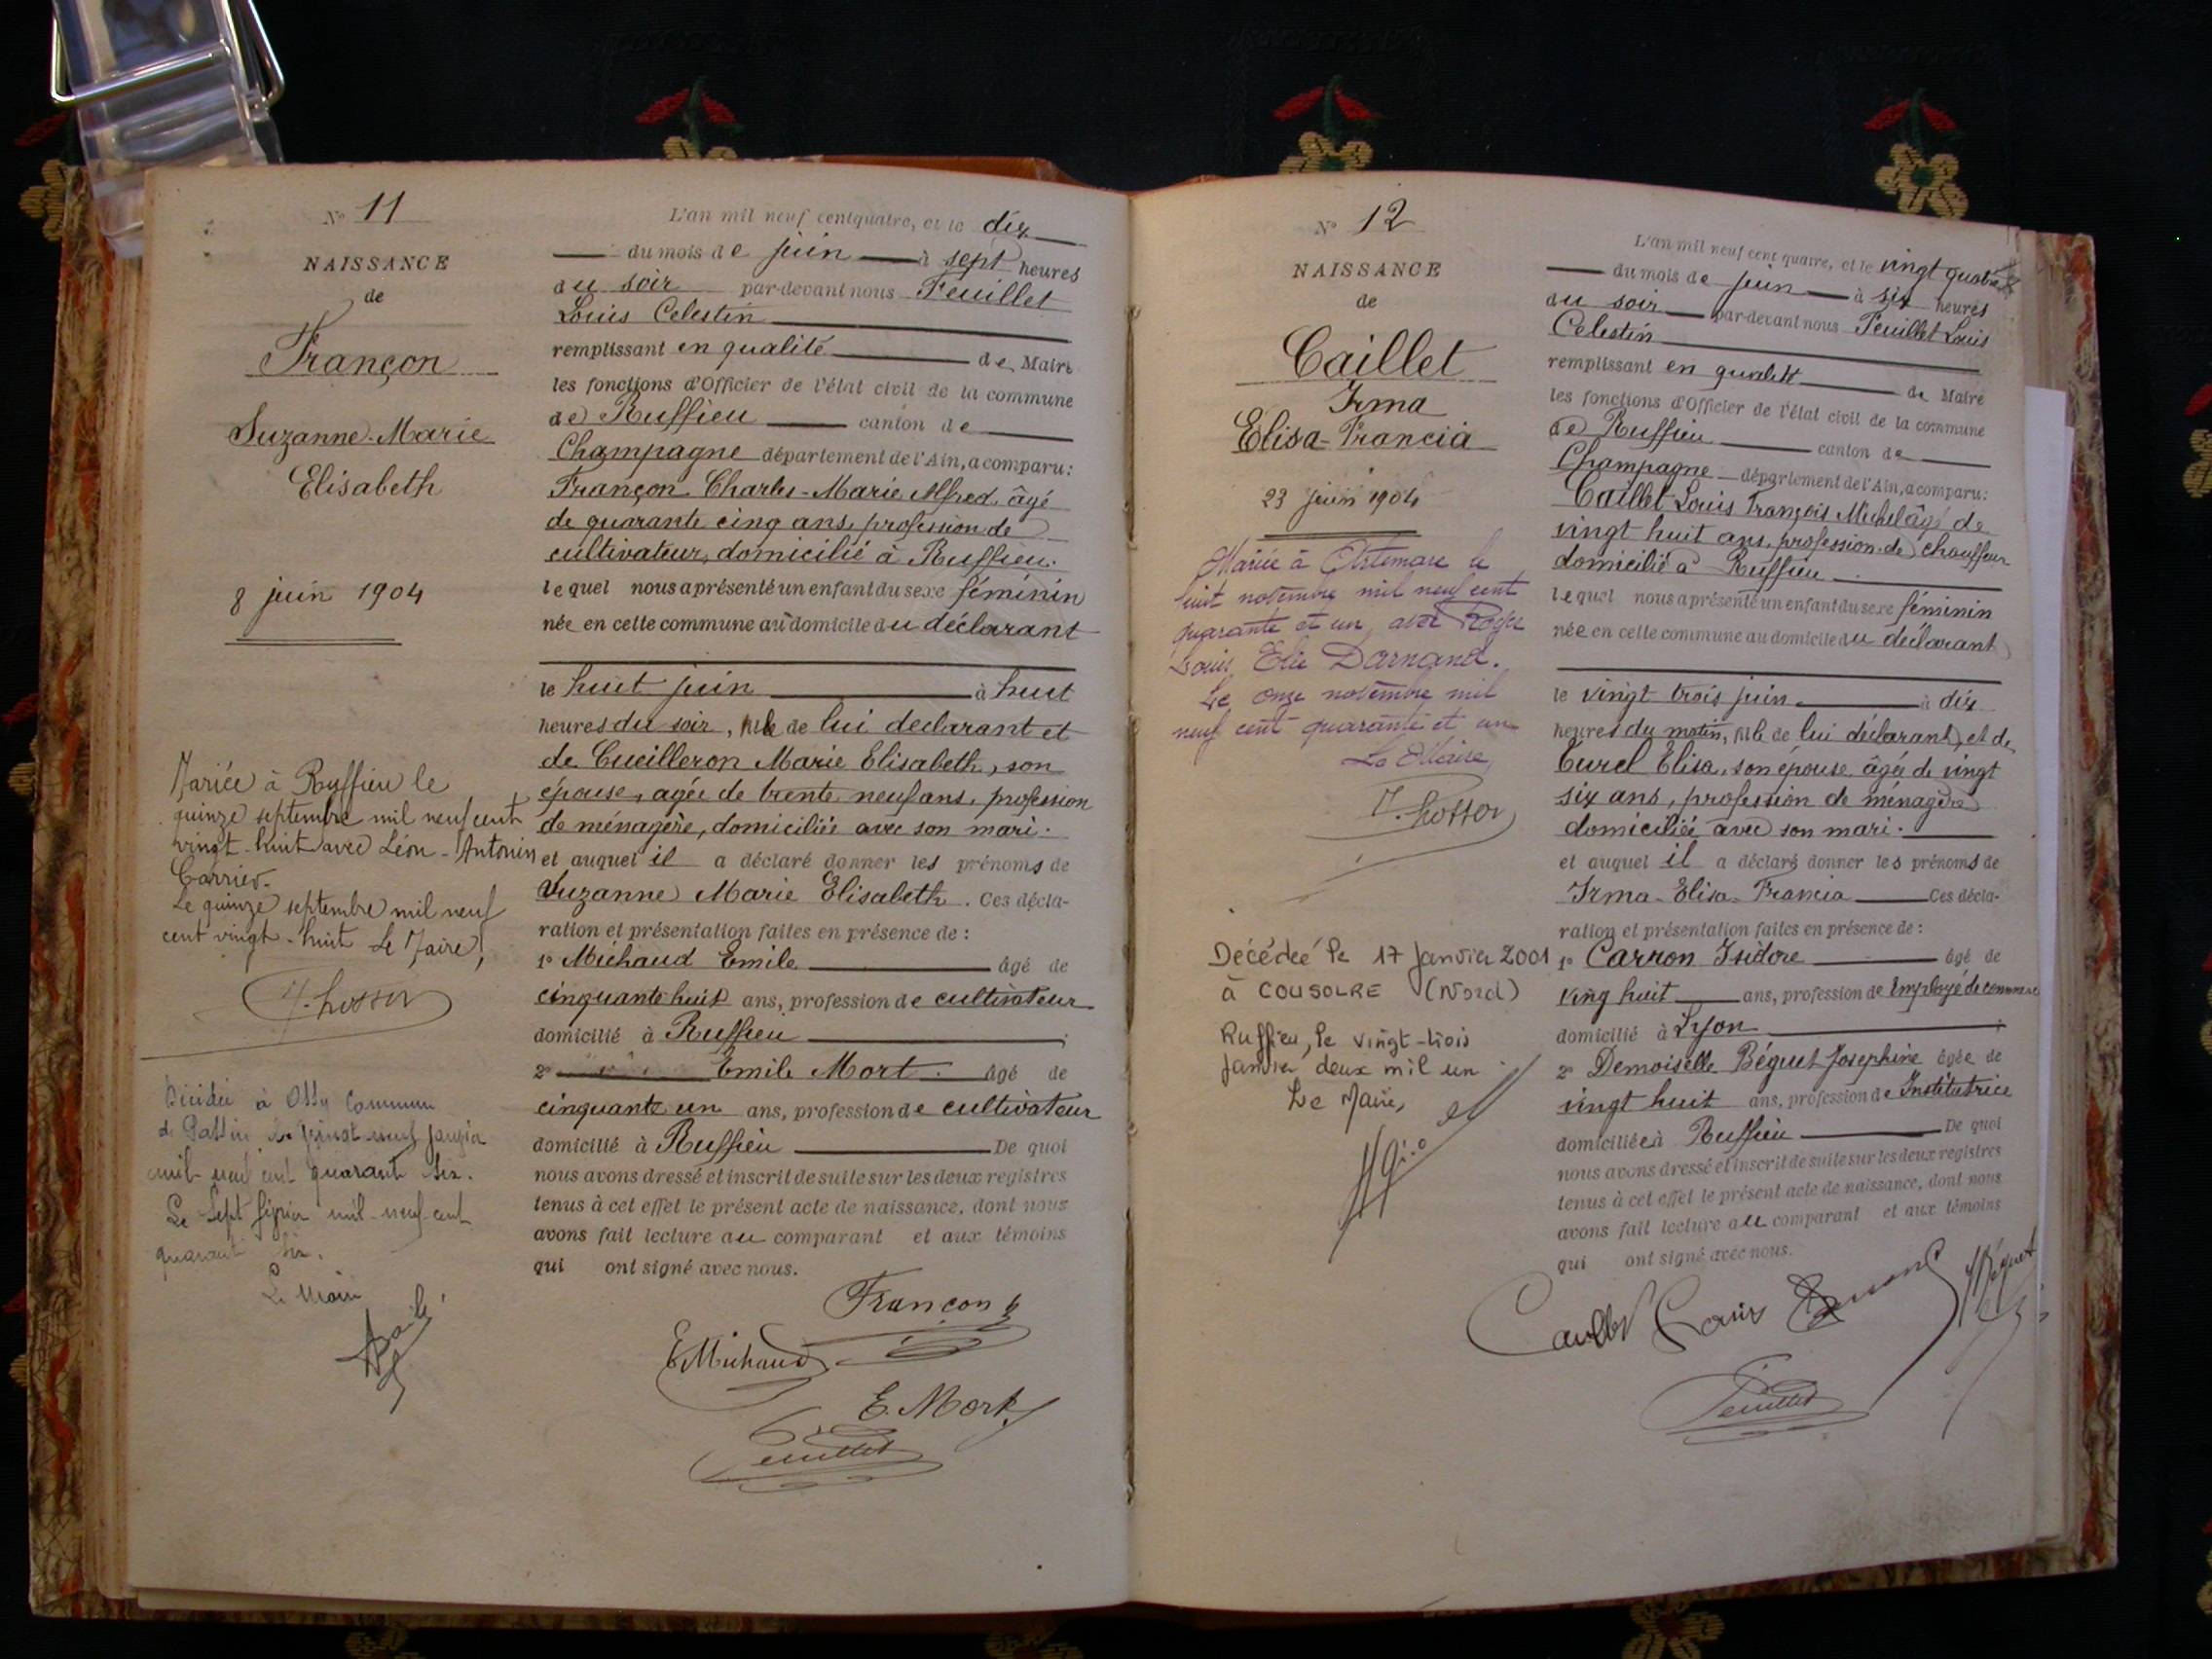 N° 11
NAISSANCE
de
Françon
Suzanne-Marie
Elisabeth
8 juin 1904
Mariée à Ruffieu le
quinze septembre mil neuf cent
vingt-huit avec Léon-Antonin
Carrier.
Le quinze septembre mil neuf
cent vingt-huit Le Maire,
Décédée à Ossy commune
de vingt neuf janvier
mil neuf cent quarante six.
Le sept février mil neuf cent
quarante six.
Le Maire
L'an mil neuf cent quatre, et le dix
du mois de juin à sept heures
du soir par-devant nous Feuillet
Louis Celestin
remplissant en qualité de Maire
les fonctions d'Officier de l'état civil de la commune
de Ruffieu canton de
Champagne département de l'Ain, a comparu:
Françon Charles-Marie Alfred, âgé
de quarante cinq ans, profession de
cultivateur, domicilié à Ruffieu.
lequel nous a présenté un enfant du sexe féminin
née en cette commune au domicile du déclarant
le huit juin à huit
heures du soir, fille de lui declarant et
de Cueilleron Marie Elisabeth, son
épouse, agée de trente neuf ans, profession
de ménagère, domiciliée avec son mari.
et auquel il a déclaré donner les prénoms de
Suzanne Marie Elisabeth. Ces décla-
ration et présentation faites en présence de :
1° Michaud Emile âgé de
cinquante huit ans, profession de cultivateur
domicilié à Ruffieu ;
2° Emile Mort. âgé de
cinquante un ans, profession de cultivateur
domicilié à Ruffieu De quoi
nous avons dressé et inscrit de suite sur les deux registres
tenus à cet effet le présent acte de naissance, dont nous
avons fait lecture au comparant et aux témoins
qui ont signé avec nous.
Françon
E Michaud
E. Mort
Feuillet
N° 12
NAISSANCE
de
Caillet
Irma
Elisa-Francia
23 juin 1904
Mariée à Artemare le
huit novembre mil neuf cent
quarante et un avec Roger
Louis Elie Darnand.
Le onze novembre mil
neuf cent quarante et un
Le Maire,
Décédée le 17 Janvier 2001
à COUSOLRE (Nord)
Ruffieu, le vingt-trois
Janvier deux mil un
Le Maire,
L'an mil neuf cent quatre, et le vingt quatre
du mois de juin à six heures
du soir par-devant nous Feuillet Louis
Celestin
remplissant en qualité de Maire
les fonctions d'Officier de l'état civil de la commune
de Ruffieu canton de
Champagne département de l'Ain, a comparu:
Caillet Louis François Michel âgé de
vingt huit ans, profession de chauffeur
domicilié à Ruffieu
lequel nous a présenté un enfant du sexe féminin
née en cette commune au domicile du déclarant
le vingt trois juin à dix
heures du matin, fille de lui déclarant, et de
Curel Elisa, son épouse, âgée de vingt
six ans, profession de ménagère
domiciliée avec son mari.
et auquel il a déclaré donner les prénoms de
Irma-Elisa-Francia Ces décla-
ration et présentation faites en présence de :
1° Carron Isidore âgé de
ving huit ans, profession de Employé de commerce
domicilié à Lyon ;
2° Demoiselle Béguet Josephine âgée de
vingt huit ans, profession de Institutrice
domiciliée à Ruffieu De quoi
nous avons dressé et inscrit de suite sur les deux registres
tenus à cet effet le présent acte de naissance, dont nous
avons fait lecture au comparant et aux témoins
qui ont signé avec nous.
Caillet Louis
J Béguet
Feuillet